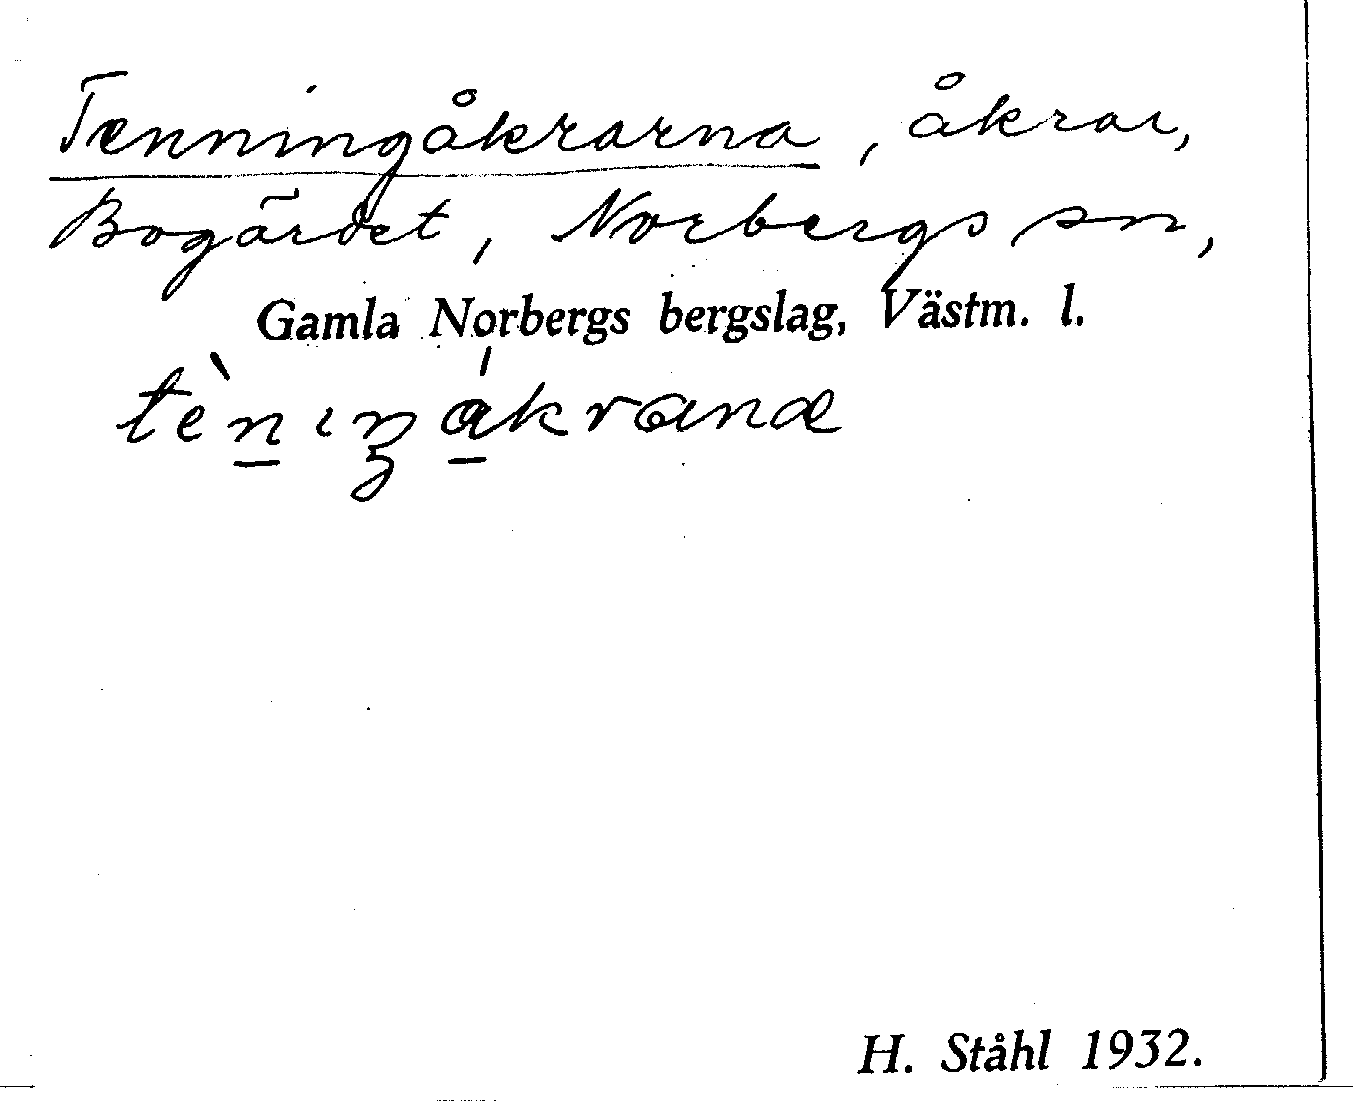 Tenningåkrarna, åkrar,
Bogärdet, Norbergs sn,
Gamla Norbergs bergslag, Västm. l.
tèniŋåkrana
H. Ståhl 1932.